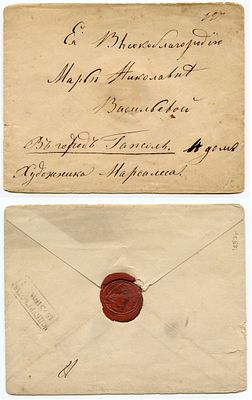 Ея Высокоблагородію
Марьѣ Николаевнѣ
Васильевой
Въ городъ Гапсаль. въ домѣ
Художника Марсалеса.